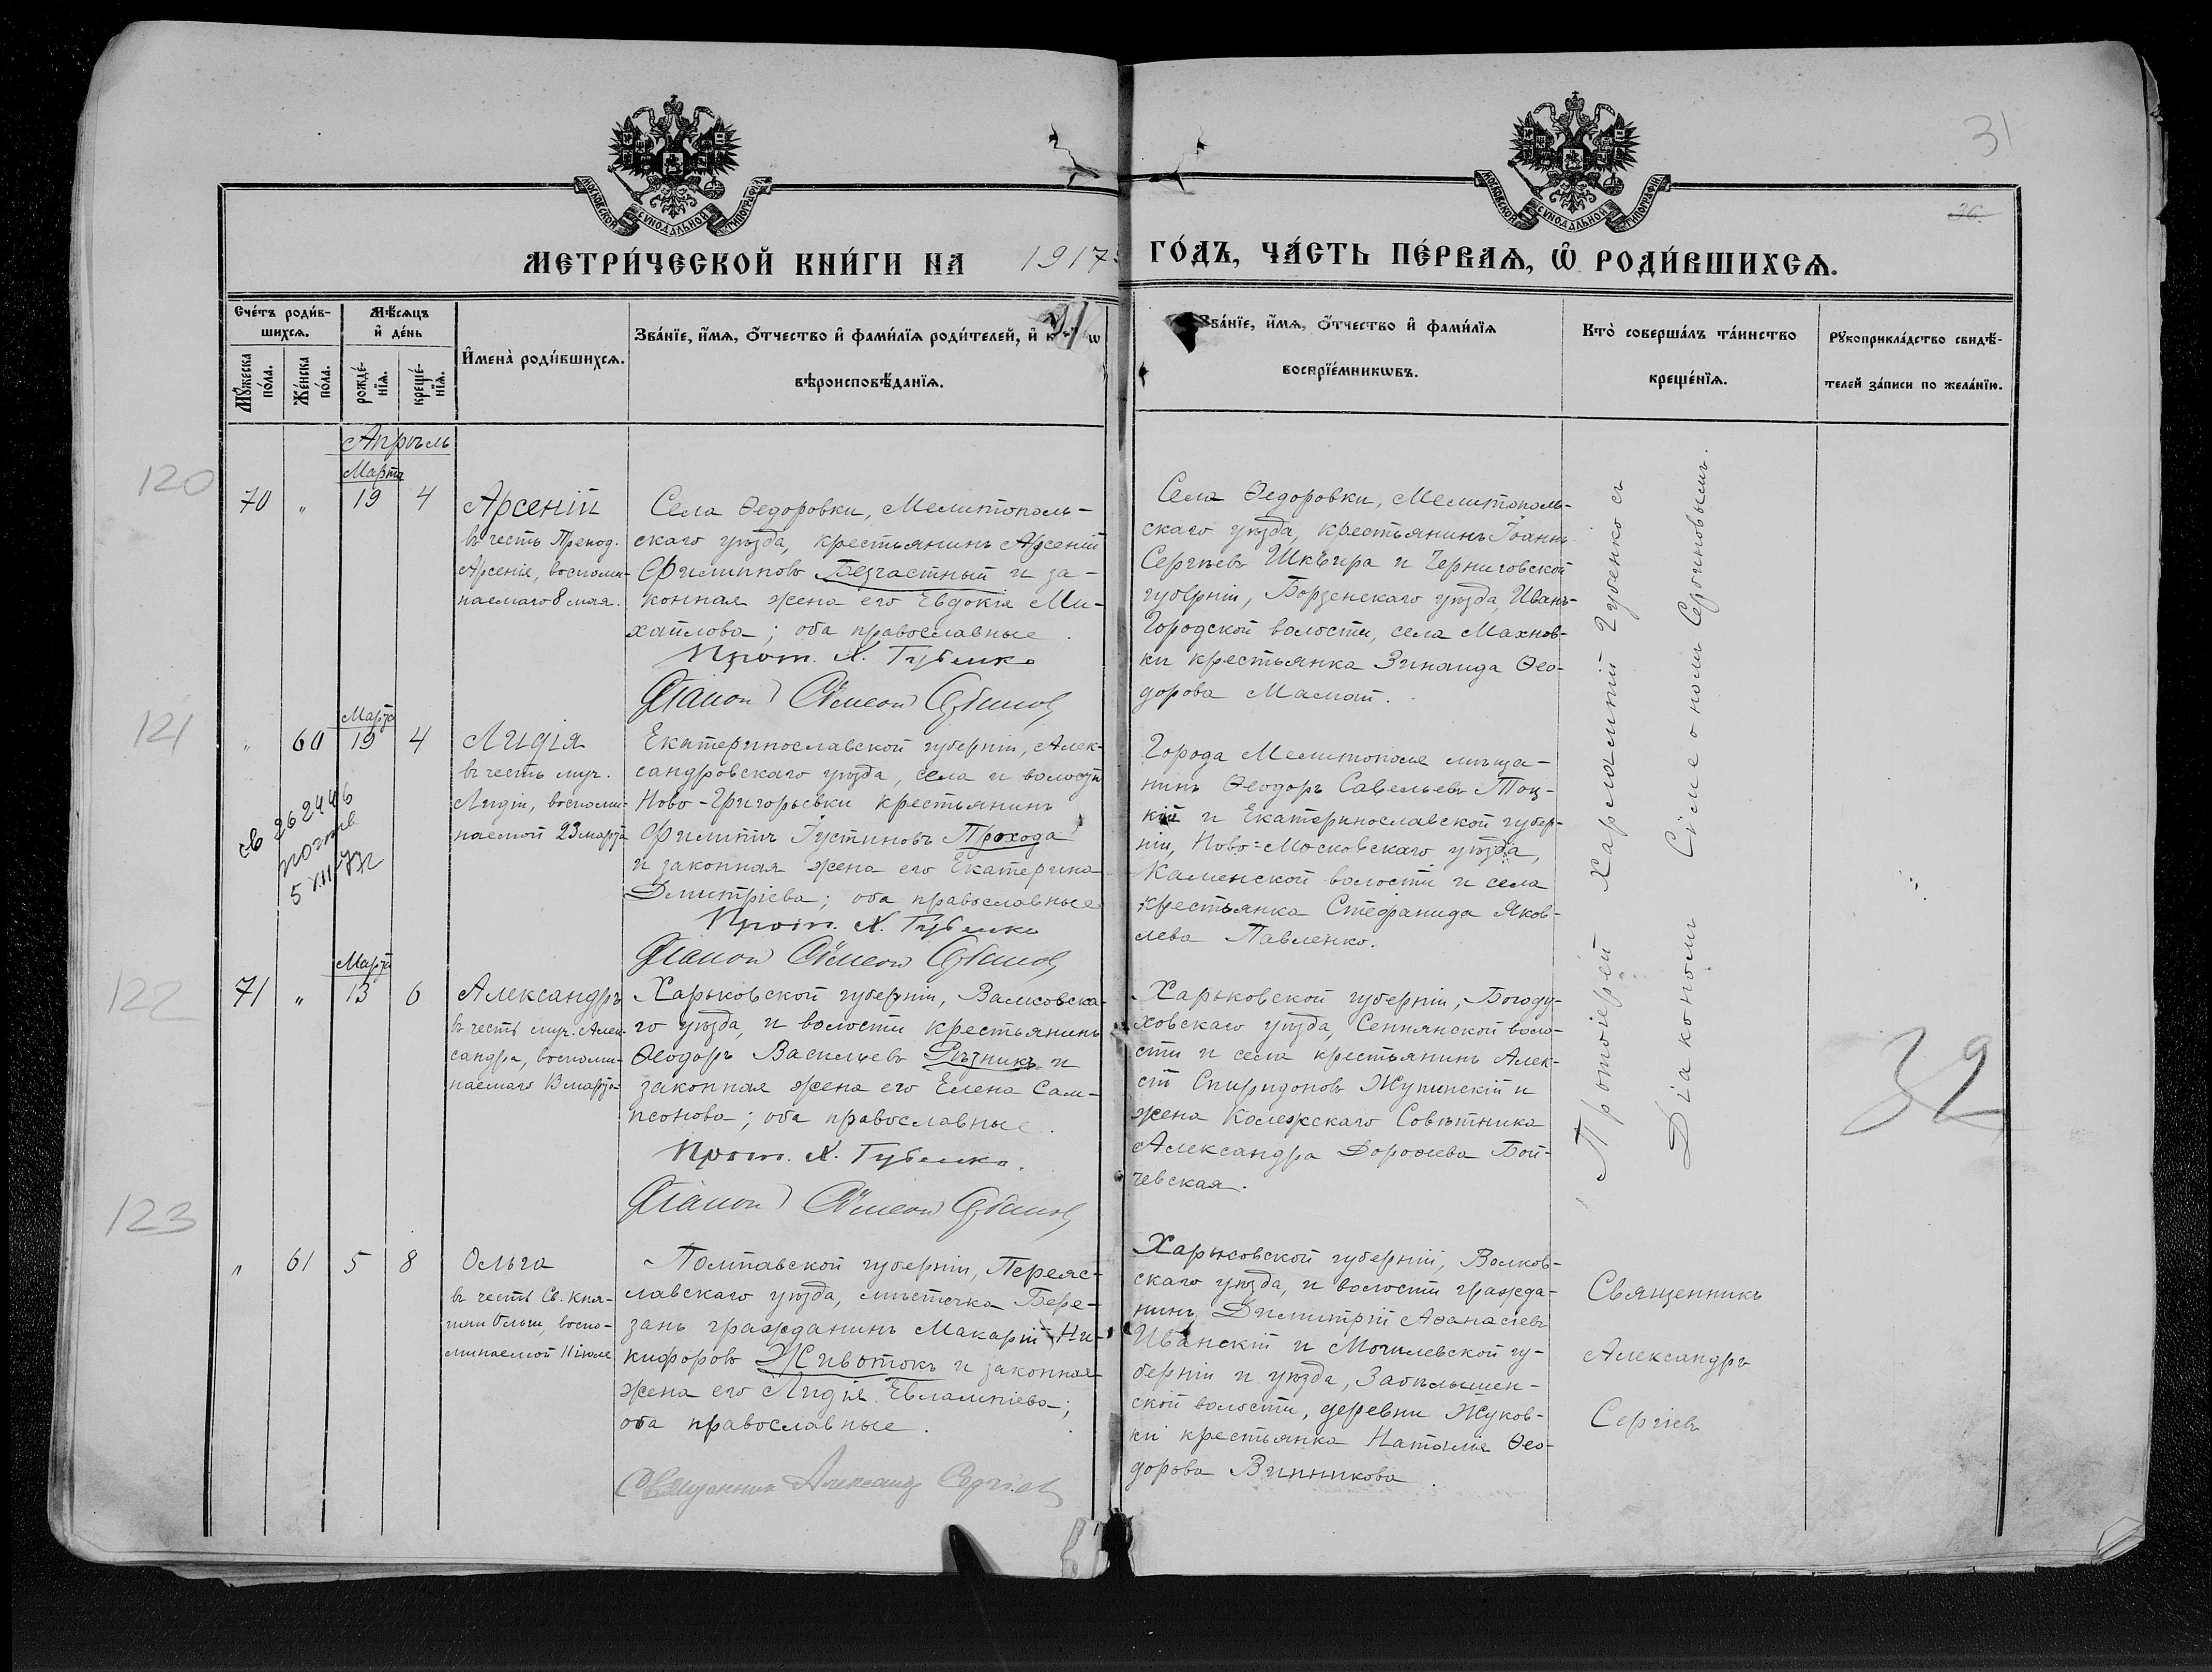 МОСКОВСКОЙ СѴНОДАЛЬНОЙ ТИПОГРАФІИ
МОСКОВСКОЙ СѴНОДАЛЬНОЙ ТИПОГРАФІИ
31
36.
МЕТРИ́ЧЕСКОЙ КНИ́ГИ НА 1917 ГО́ДЪ, ЧА́СТЬ ПЕ́РВАѦ, Ѡ҆ РОДИ́ВШИХСѦ.
Сче́тъ роди́в-
шихсѧ.
Мꙋ́жеска по́ла.
Же́нска по́ла.
Мѣ́сѧцъ
и҆ де́нь
рожде́-
нїѧ.
креще́-
нїѧ.
И҆мена̀ роди́вшихсѧ.
Зва́нїе, и҆́мѧ, ѻ҆́тчество и҆ фами́лїѧ роди́телей, и҆
31
вѣроисповѣ́данїѧ.
Зва́нїе, и҆́мѧ, ѻ҆́тчество и҆ фами́лїѧ
воспрїе́мникѡвъ.
Кто̀ соверша́лъ та́инство
креще́нїѧ.
Рꙋкоприкла́дство свидѣ́-
телей за́писи по жела́нїю.
Апрѣль
Марта
120
70 „ 19 4
Арсеній
въ честь Препод.
Арсенія, воспоми-
наемаго 8 мая.
Села Ѳедоровки, Мелитополь-
скаго уѣзда, крестьянинъ Арсеній
Филипповъ Безчастный и за-
конная жена его Евдокія Ми-
хайлова; оба православные.
Прот. Х. Губенко
Діакон Сімеон Сербинов
Села Ѳедоровки, Мелитополь-
скаго уѣзда, крестьянинъ Іоаннъ
Сергѣевъ Шквира и Черниговской
губерніи, Борзенскаго уѣзда, Иванъ-
Городской волости, села Махнов-
ки крестьянка Зинаида Ѳео-
дорова Мамай.
Протоіерей Харлампій Губенко съ
Діакономъ Сімеономъ Сербиновымъ.
Марта
121
„ 60 19 4
Лидія
въ честь муч.
Лидіи, воспоми-
наемой 23 марта
св 262446
5 XII 77г
Екатеринославской губерніи, Алек-
сандровскаго уѣзда, села и волости
Ново-Григорьевки крестьянинъ
Филиппъ Іустиновъ Прохода
и законная жена его Екатерина
Димитріева; оба православные
Прот. Х. Губенко
Діакон Сімеон Сербинов
Города Мелитополя мѣща-
нинъ Ѳеодоръ Савельевъ Тоц-
кій и Екатеринославской губер-
ніи, Ново=Московскаго уѣзда,
Каменской волости и села
крестьянка Стефанида Яков-
лева Павленко.
Марта
122
71 „ 13 6
Александръ
въ честь муч. Алек-
сандра, воспоми-
наемаго 13 марта
Харьковской губерніи, Валковска-
го уѣзда, и волости крестьянинъ
Ѳеодоръ Васильевъ Рѣзникъ и
законная жена его Елена Сам-
псонова; оба православные.
Прот. Х. Губенко.
Діакон Сімеон Сербинов
Харьковской губерніи, Богоду-
ховскаго уѣзда, Сеннянской воло-
сти и села крестьянинъ Алек-
сій Спиридоновъ Жупинскій и
жена Колежскаго Совѣтника
Александра Дороѳеева Бой-
чевская.
32
123
„ 61 5 8
Ольга
въ честь Св. Кня-
гини Ольги, воспо-
минаемой 11 іюля
Полтавской губерніи, Переяс-
лавскаго уѣзда, мѣстечка Бере-
зань гражданинъ Макарій Ни-
кифоровъ Животокъ и законная
жена его Лидія Евлампіева;
оба православные.
Священник Александр Сергіев
Харьковской губерніи, Волков-
скаго уѣзда, и волости гражда-
нинъ Димитрій Аѳанасіевъ
Иванскій и Могилевской гу-
берніи и уѣзда, Заболышен-
ской волости, деревни Жуков-
ки крестьянка Наталія Ѳео-
дорова Винникова.
Священникъ
Александръ
Сергіевъ